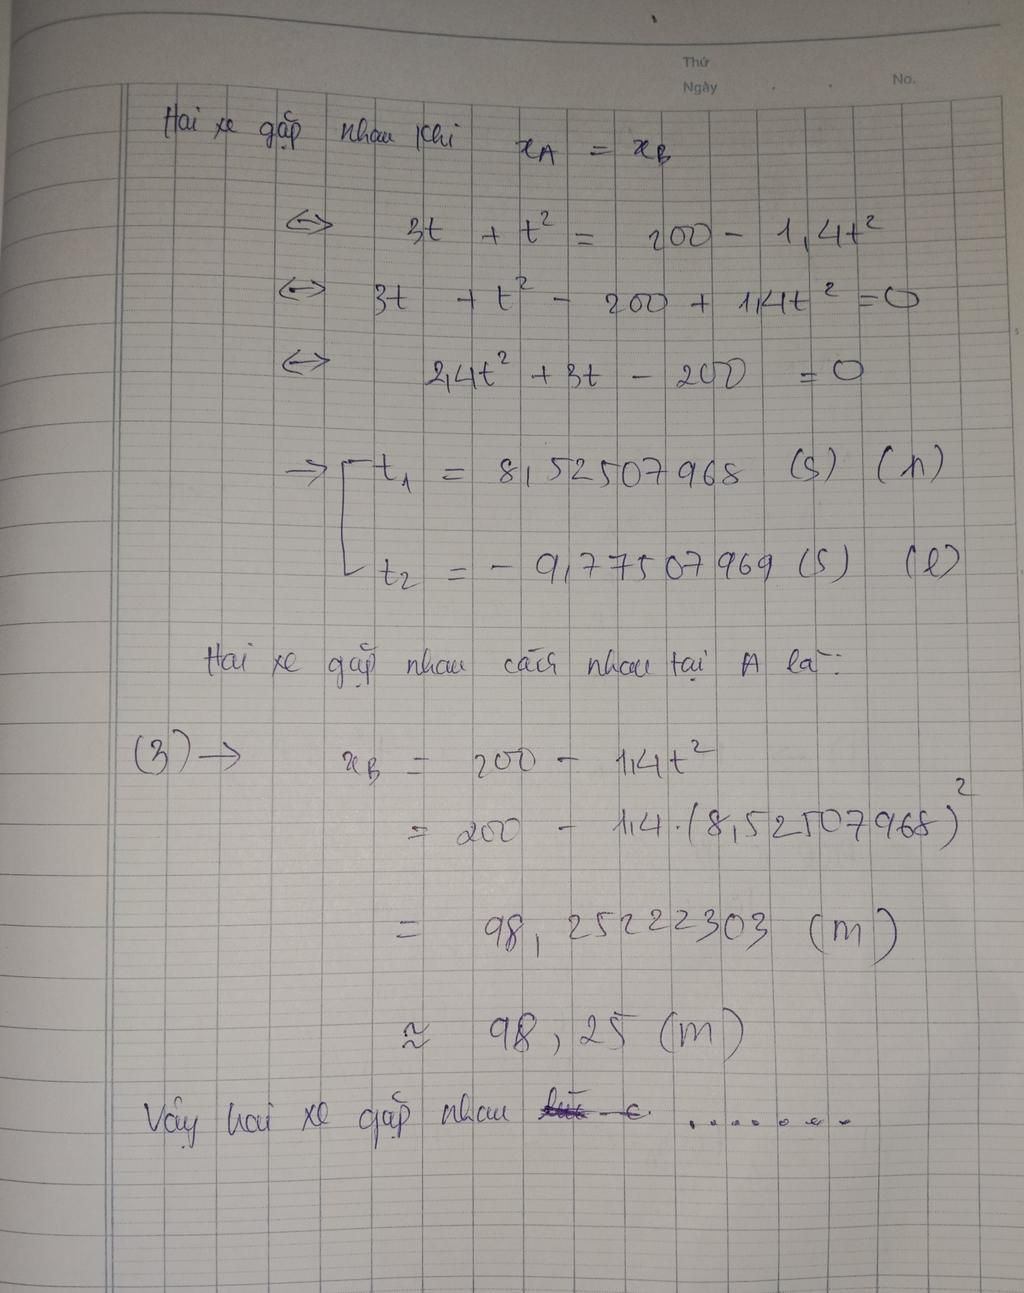 Thứ
Ngày
No.
Hai xe gặp nhau khi xA = xB
<=> 3t + t² = 200 - 1,4t²
<=> 3t + t² - 200 + 1,4t² = 0
<=> 2,4t² + 3t - 200 = 0
→ [ t₁ = 8,52507968 (s) (n)
t₂ = - 9,77507969 (s) (l)
Hai xe gặp nhau cách nhau tại A là:
(3) → xB = 200 - 1,4t²
= 200 - 1,4.(8,52507968)²
= 98,25222303 (m)
≈ 98,25 (m)
Vậy hai xe gặp nhau ........